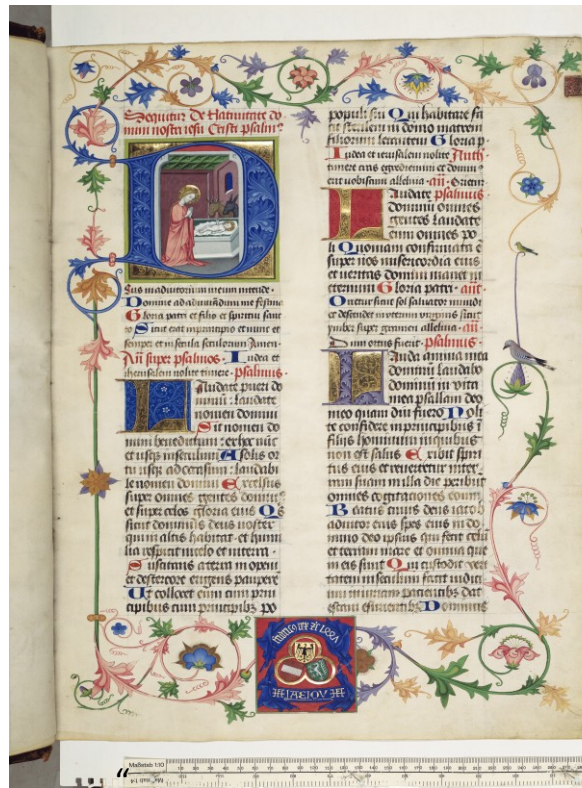 Sequitur De Natiuitate do
mini nostri iesu Cristi psalm9
Deus in adiutorium meum intende
Domine ad adiuuandum me festina
Gloria patri et filio et spiritui sanc
to Sicut erat in principio et nunc et
semper et in secula seculorum Amen
An super psalmos Iudea et
iherusalem nolite timere psalmus
Laudate pueri do
minu laudate
nomen domini
Sit nomen do
mini benedictum ex hoc nūc
et usqz in seculum A solis or
tu usqz ad occasum laudabi
le nomen domini Excelsus
super omnes gentes dominus
et super celos gloria eius Qs
sicut dominus deus noster
qui in altis habitat et humi
lia respicit in celo et in terra
Suscitans a terra inopem
et de stercore erigens paupere
Ut collocet eum cum prin
cipibus cum principibz po
populi sui Qui habitare fa
cit sterilem in domo matrem
filiorum letantem Gloria p
Iudea et ierusalem nolite
timere cras egrediemini et domin9
erit uobiscum alleluia an Orietur
Laudate psalmus
dominū omnes
gentes laudate
eum omnes po
li Quoniam confirmata ē
super nos misericordia eius
et ueritas domini manet in
eternum Gloria patri ant
Orietur sicut sol saluator mundi
et descendet in uterum uirginis sicut
ymber super gramen alleluia an
Dum ortus fuerit psalmus
Lauda anima mea
dominū laudabo
dominū in uita
mea psallam deo
meo quam diu fuero Noli
te confidere in principibus ī
filijs hominum in quibus
non est salus Exibit spiri
tus eius et reuertetur in ter
ram suam in illa die peribunt
omnes cogitaciones eorum
Beatus cuius deus iacob
adiutor eius spes eius in do
mino deo ipsius qui fecit celū
et terram mare et omnia que
in eis sunt Qui custodit ueri
tatem in seculum facit iudici
um iniuriam pacientibz dat
escam esurientibz Dominus
AEIOV
Maßstab 1:10
Maßstab 1:4